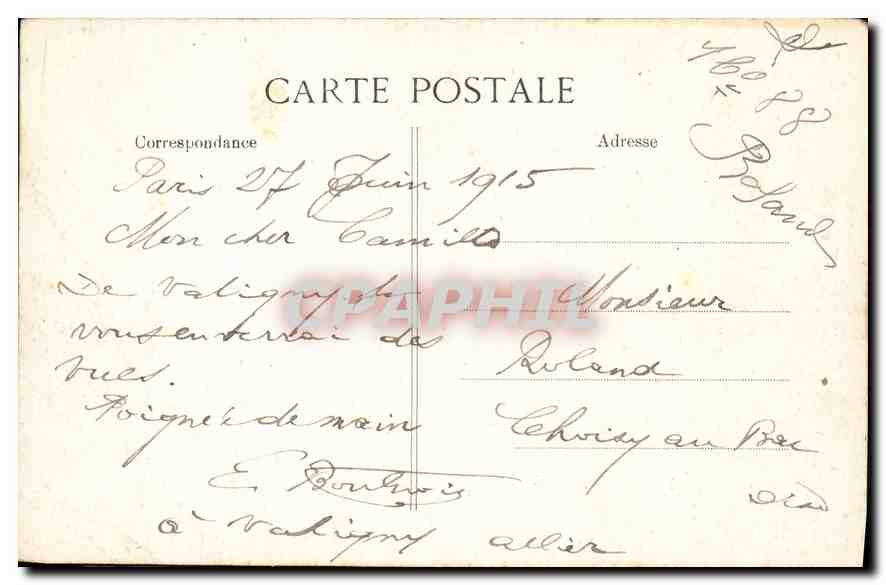 CARTE POSTALE
Correspondance
Adresse
Paris 27 Juin 1915
Mon cher Camille
De Valigny je
vous enverrai des
vues.
Poignée de main
à Valigny allier
Monsieur
Roland
Choisy au Bac
Oise
Roland
CPAPHIL